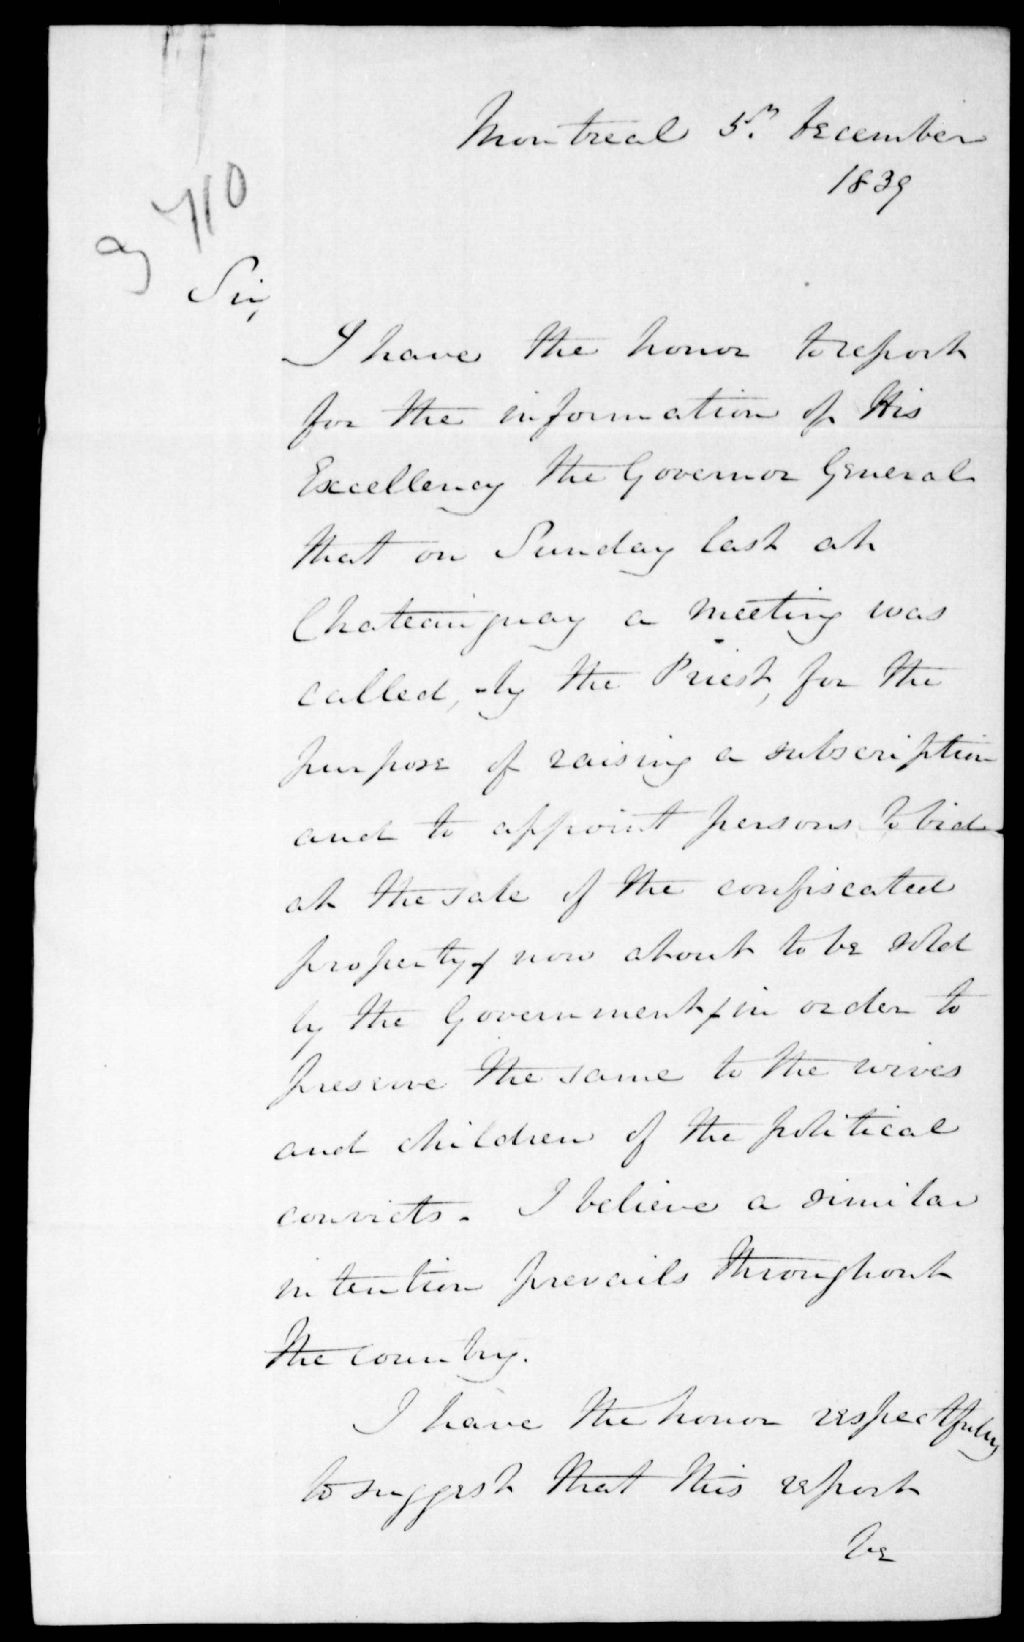 Montreal 5th December
1839
g 710
Sir,
I have the honor to report
for the information of His
Excellency the Governor General
that on Sunday last at
Chateauguay a meeting was
called, by the Priest, for the
purpose of raising a subscription
and to appoint persons to bid
at the sale of the confiscated
property, now about to be sold
by the Government, in order to
preserve the same to the wives
and children of the political
convicts. I believe a similar
intention prevails throughout
the country.
I have the honor respectfully
to suggest that this report
be